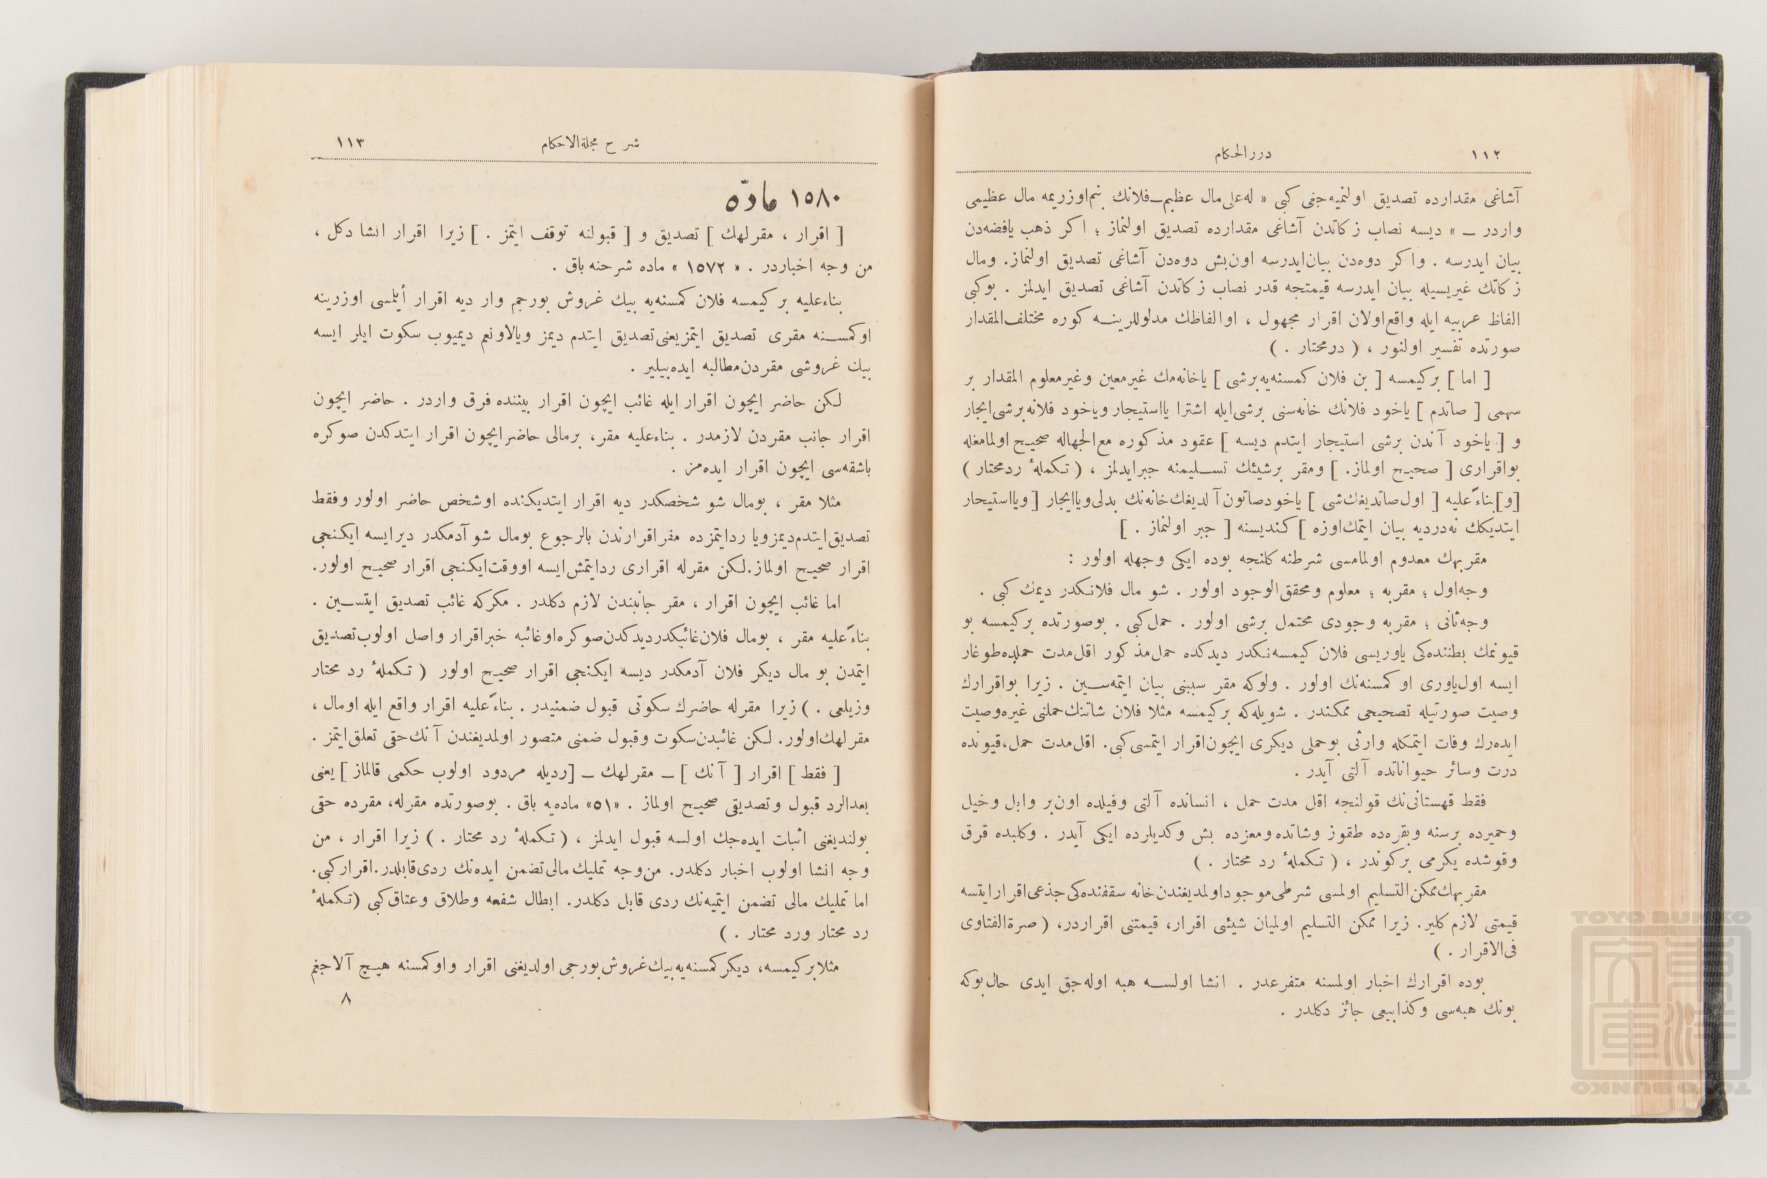 ١١٢ دررالحكام
آشاغی مقدارده تصدیق اولنمیه جغی کبی « له علی مال عظیم ــ فلانك بنم اوزریمه مال عظیمی
واردر ــ » دیسه نصاب زکاتدن آشاغی مقدارده تصدیق اولنماز ؛ اکر ذهب یافضه دن
بیان ایدرسه . واکر دوه دن بیان ایدرسه اون بش دوه دن آشاغی تصدیق اولنماز. ومال
زکاتك غیریسیله بیان ایدرسه قیمتجه قدر نصاب زکاتدن آشاغی تصدیق ایدلمز . بوکبی
الفاظ عربیه ایله واقع اولان اقرار مجهول ، اوالفاظك مدلوللرینه کوره مختلف المقدار
صورتده تفسیر اولنور ، ( درمختار . )
[ اما ] برکیمسه [ بن فلان کمسنه یه برشی ] یاخانه مك غیر معین وغیر معلوم المقدار بر
سهمی [ صاتدم ] یاخود فلانك خانه سنی برشی ایله اشترا یااستیجار ویاخود فلانه برشی ایجار
و [ یاخود آندن برشی استیجار ایتدم دیسه ] عقود مذکوره مع الجهاله صحیح اولمامغله
بواقراری [ صحیح اولماز. ] ومقر برشیئك تسلیمنه جبر ایدلمز ، ( تکملهٔ ردمختار )
[و] بناءً علیه [ اول صاتدیغك شی ] یاخود صاتون آلدیغك خانه نك بدلی ویاایجار [ ویااستیجار
ایتدیکك نه در دیه بیان ایتمك اوزه ] کندیسنه [ جبر اولنماز . ]
مقر بهك معدوم اولمامسی شرطنه کلنجه بوده ایکی وجهله اولور :
وجه اول ؛ مقربه ؛ معلوم ومحقق الوجود اولور . شو مال فلانکدر دیمك کبی .
وجه ثانی ؛ مقربه وجودی محتمل برشی اولور . حمل کبی . بوصورتده برکیمسه بو
قیونمك بطننده کی یاوریسی فلان کیمسه نکدر دیدکده حمل مذکور اقل مدت حملده طوغار
ایسه اول یاوری اوکمسنه نك اولور . ولوکه مقر سببنی بیان ایتمه سین . زیرا بواقرارك
وصیت صورتیله تصحیحی ممکندر . شویله که برکیمسه مثلا فلان شاتنك حملنی غیره وصیت
ایده رك وفات ایتمکله وارثی بوحملی دیکری ایچون اقرار ایتمسی کبی. اقل مدت حمل، قیونده
درت وسائر حیواناتده آلتی آیدر .
فقط قهستانی نك قولنجه اقل مدت حمل ، انسانده آلتی وفیلده اون بر وابل وخیل
وحمیرده برسنه وبقره ده طقوز وشاتده ومعزده بش وکدیلرده ایکی آیدر . وکلبده قرق
وقوشده یکرمی برکوندر ، ( تکملهٔ رد مختار . )
مقر بهك ممکن التسلیم اولمسی شرطی موجود اولمدیغندن خانه سقفنده کی جذعی اقرار ایتسه
قیمتی لازم کلیر. زیرا ممکن التسلیم اولمیان شیئی اقرار، قیمتنی اقراردر، ( صرة الفتاوی
فی الاقرار . )
بوده اقرارك اخبار اولمسنه متفرعدر . انشا اولسه هبه اوله جق ایدی حال بوکه
بونك هبه سی وکذا بیعی جائز دکلدر .
شرح مجلة الاحکام ١١٣
١٥٨٠ مادّه
[ اقرار ، مقر لهك ] تصدیق و [ قبولنه توقف ایتمز . ] زیرا اقرار انشا دکل ،
من وجه اخباردر . « ١٥٧٢ » ماده شرحنه باق .
بناءعلیه برکیمسه فلان کمسنه یه بیك غروش بورجم وار دیه اقرار أیلمسی اوزرینه
اوکمسنه مقری تصدیق ایتمز یعنی تصدیق ایتدم دیمز ویااونعم دیمیوب سکوت ایلر ایسه
بیك غروشی مقردن مطالبه ایده بیلیر .
لکن حاضر ایچون اقرار ایله غائب ایچون اقرار بیننده فرق واردر . حاضر ایچون
اقرار جانب مقردن لازمدر . بناءعلیه مقر، برمالی حاضر ایچون اقرار ایتدکدن صوکره
باشقه سی ایچون اقرار ایده مز .
مثلا مقر ، بومال شو شخصکدر دیه اقرار ایتدیکنده اوشخص حاضر اولور وفقط
تصدیق ایتدم دیمز ویا رد ایتمزده مقر اقرارندن بالرجوع بومال شو آدمکدر دیر ایسه ایکنجی
اقرار صحیح اولماز. لکن مقرله اقراری رد ایتمش ایسه اووقت ایکنجی اقرار صحیح اولور.
اما غائب ایچون اقرار ، مقر جانبندن لازم دکلدر . مکرکه غائب تصدیق ایتسین .
بناءً علیه مقر ، بومال فلان غائبکدر دیدکدن صوکره اوغائبه خبر اقرار واصل اولوب تصدیق
ایتمدن بو مال دیکر فلان آدمکدر دیسه ایکنجی اقرار صحیح اولور ( تکملهٔ رد مختار
وزیلعی . ) زیرا مقرله حاضرك سکوتی قبول ضمنیدر . بناءً علیه اقرار واقع ایله اومال ،
مقر لهك اولور. لکن غائبدن سکوت وقبول ضمنی متصور اولمدیغندن آنك حقی تعلق ایتمز .
[ فقط ] اقرار [ آنك ] ــ مقر لهك ــ [ ردیله مردود اولوب حکمی قالماز ] یعنی
بعدالرد قبول وتصدیقی صحیح اولماز . «٥١» ماده یه باق . بوصورتده مقرله، مقرده حقی
بولندیغنی اثبات ایده جك اولسه قبول ایدلمز ، ( تکملهٔ رد مختار . ) زیرا اقرار ، من
وجه انشا اولوب اخبار دکلدر. من وجه تملیك مالی تضمن ایده نك ردی قابلدر. اقرار کبی.
اما تملیك مالی تضمن ایتمیه نك ردی قابل دکلدر. ابطال شفعه وطلاق وعتاق کبی (تکملهٔ
رد مختار ورد مختار . )
مثلا برکیمسه، دیکر کمسنه یه بیك غروش بورجی اولدیغنی اقرار واوکمسنه هیچ آلاجغم
٨
TOYO BUNKO
TOYO BUNKO